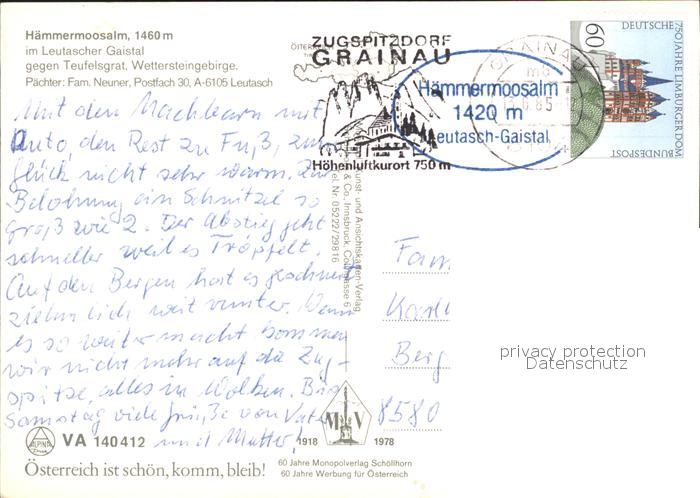 Hämmermoosalm, 1460 m
im Leutascher Gaistal
gegen Teufelsgrat, Wettersteingebirge.
Pächter: Fam. Neuner, Postfach 30, A-6105 Leutasch
ZUGSPITZDORF
GRAINAU
Höhenluftkurort 750 m
GRAINAU
Hämmermoosalm
1420 m
Leutasch-Gaistal
60
DEUTSCHE BUNDESPOST
750 JAHRE LIMBURGER DOM
Mit den Nachbarn mit
Auto, den Rest zu Fuß, zum
Glück nicht sehr warm. Zur
Belohnung ein Schnitzel so
groß wie 2. Der Abstieg geht
schneller weil es Tröpfelt.
Auf den Bergen hat es geschneit
ziemlich weit runter. Wenn
es so weiter macht kommen
wir nicht mehr auf die Zug-
spitze, alles in Wolken. Bis
Samstag viele Grüße von Vater
und Mutter!
Kunst- und Ansichtskarten-Verlag
& Co., Innsbruck,
Tel. Nr. 05222/29816
Fam
Karl
Berg
8580
privacy protection
Datenschutz
ALPINA
VA 140412
MV
1918 1978
Österreich ist schön, komm, bleib!
60 Jahre Monopolverlag Schöllhorn
60 Jahre Werbung für Österreich